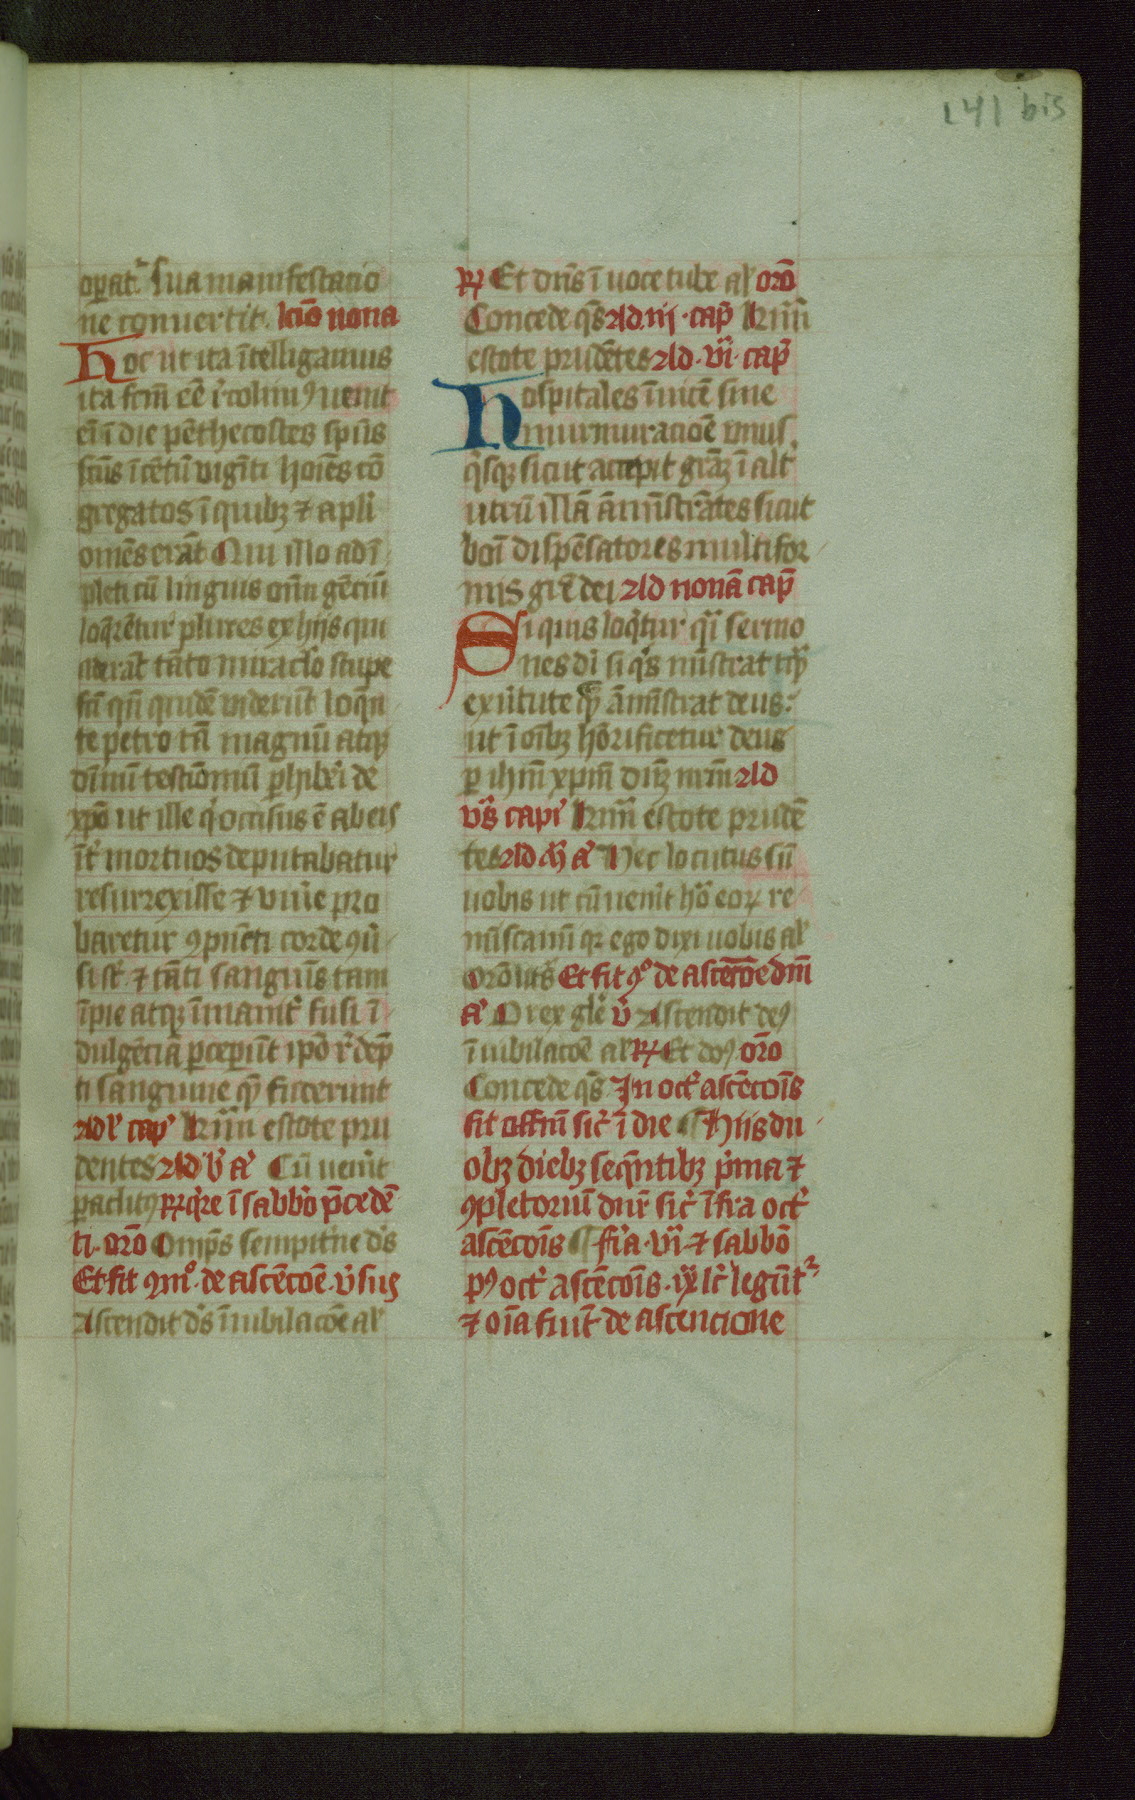 141 bis
oꝑat᷑ Sua manifestacio
ne conuertit. lcīo nona
Hoc ut ita ītelligamus
ita sc̄m
eī ī die pēthecostes sp̄us
sc̄us ī cētū vigīti hoīes cō
gregatos ī quibꝫ ⁊ apl̄i
om̄es erāt Qui illo adī
pleti cū linguis om̄ū gēciū
loq̄rētur plures ex hijs qui
aderāt tāto miraclo stupe
fc̄i qn̄ quidē viderūt loq̄n
te petro tā magnū atqꝫ
diuinū testiōniū ꝑhiberi de
xp̄o ut ille q̇ occisus ē ab eis
īt̄ mortuos deputabatur
resurrexisse ⁊ viuīe pro
baretur ꝯpūcti corde ꝯū
sist̄ ⁊ tāti sanguīs tam
īpie atqꝫ īmanit̄ fusi ī
dulgēciā ꝑceperūt ip̄o
ti sanguine qȝ fuderunt
estote pru
dentes Ad Cū venīt
paclitꝰ ī sabbō p̄cedē
ti. orō Om̄ps sempit̄ne d̄s
Et fit ꝯmº. de ascēcōe. v̄sus
Ascendit d̄s ī iubilacōe al̄
℟ Et dn̄s ī uoce tube al̄ orō
Concede qs̄ Ad. iij. cap̄ Krm̄i
estote prudētes Ad. vi. cap̄
Hospitales īuicē sine
murmuracioē vnus
q̇sqꝫ sicut accepit gr̄aꝫ ī alt̄
utrū illā āmīstrātes sicut
boī dispēsatores multifor
mis gr̄e dei Ad nonā cap̄
Si quis loq̇tur q̄i sermo
nes di si q̇s mīstrat tq̄ꝫ
ex v̄tute qȝ āmīstrat deus:
ut ī oībꝫ hōrificetur deus
ꝑ ihm̄ xp̄m dn̄ꝫ nr̄m Ad
vs̄ capi Krm̄i estote prudē
tes Ad A̓ Hec locutus sū
uobis ut cū uenīt hō̄ eoꝝ re
miscamī qꝛ ego dixi uobis al̄
Et fit ꝯº de ascēcōe dn̄i
A̓ O rex gl̄e v̄ Ascendit deꝰ
ī iubilacōe al̄ ℟ Et dn̄ꝰ orō
Concede qs̄ In oct̄ ascēcōis
fit offm̄ sic̄ ī die ¶ Hiis du
obꝫ diebꝫ seq̄ntibꝫ p̄ma ⁊
ꝯpletoriū dn̄r sic̄ īfra oct̄
ascēcōis ¶ fīa. vi. ⁊ sabbō
pꝰ oct̄ ascēcōis. ix lc̄ legūt᷑
⁊ oīa fiūt de ascencione